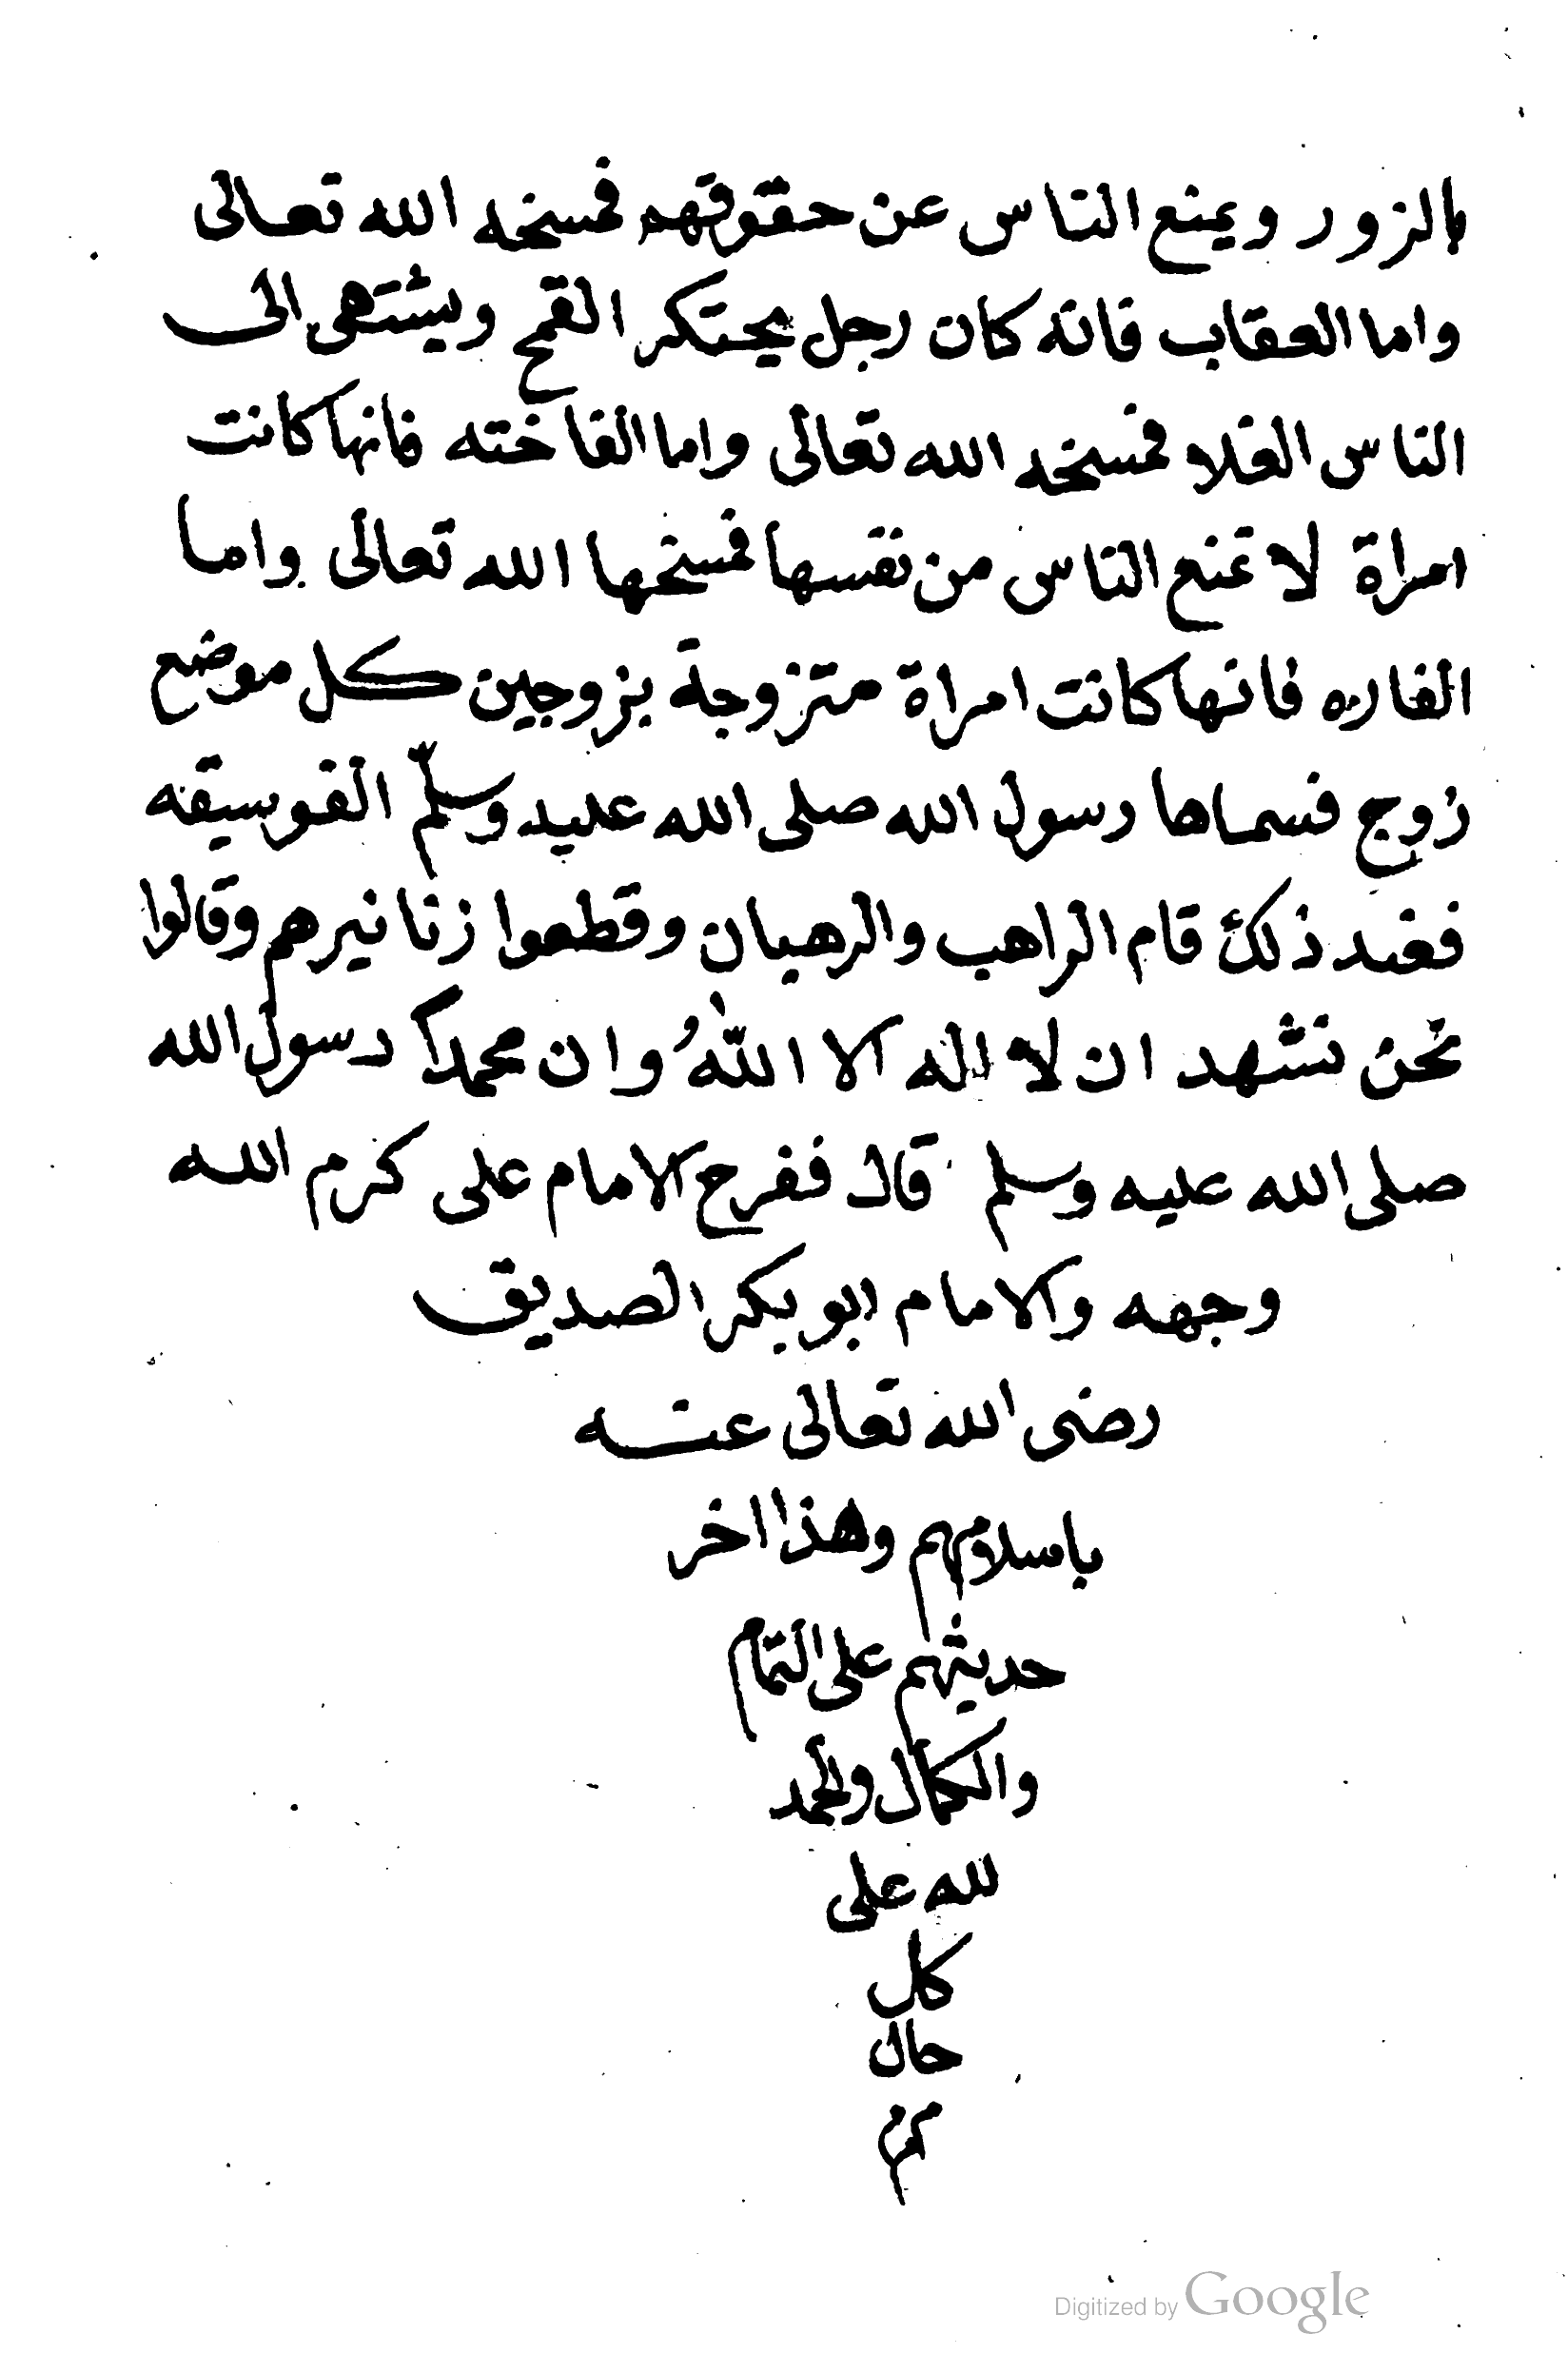 بالزور ويمنع الناس عن حقوقهم فمسخه الله تعالى
واما العقاب فانه كان رجل يحتكر القمح ويشتهى الى
الناس الغلا فمسخه الله تعالى واما الفاخته فانها كانت
امراة لا تمنع الناس من نفسها فمسخها الله تعالى واما
الفاره فانها كانت امراة متزوجة بزوجين كل موضع
زوج فسماها رسول الله صلى الله عليه وسلّم الفوسيقه
فعند ذلك قام الراهب والرهبان وقطعوا زنانيرهم وقالوا
نحن نشهد ان لا اله الا اللّهُ وان محمداً رسول الله
صلى الله عليه وسلم قال ففرح الامام على كرم الله
وجهه والامام ابو بكر الصديق
رضى الله تعالى عنه
باسلامهم وهذا اخر
حديثهم على التمام
والكمال والحمد
لله على
كل
حال
Digitized by Google